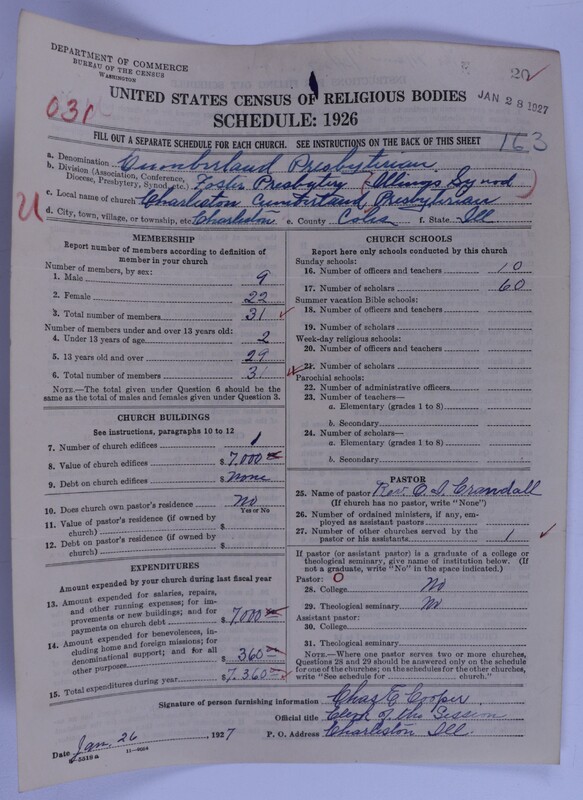 DEPARTMENT OF COMMERCE
BUREAU OF THE CENSUS
WASHINGTON
20
UNITED STATES CENSUS OF RELIGIOUS BODIES
JAN 28 1927
031
SCHEDULE: 1926
FILL OUT A SEPARATE SCHEDULE FOR EACH CHURCH. SEE INSTRUCTIONS ON THE BACK OF THIS SHEET
163
a. Denomination Cumberland Presbyterian
b. Division (Association, Conference, Diocese, Presbytery, Synod, etc.) Foster Presbytery (Illings Synod)
c. Local name of church Charleston Cumberland Presbyterian
d. City, town, village, or township, etc. Charleston e. County Coles f. State Ill
MEMBERSHIP
Report number of members according to definition of member in your church
Number of members, by sex:
1. Male 9
2. Female 22
3. Total number of members 31
Number of members under and over 13 years old:
4. Under 13 years of age 2
5. 13 years old and over 29
6. Total number of members 31
NOTE.—The total given under Question 6 should be the same as the total of males and females given under Question 3.
CHURCH BUILDINGS
See instructions, paragraphs 10 to 12
7. Number of church edifices 1
8. Value of church edifices $ 7,000
9. Debt on church edifices $ None
10. Does church own pastor's residence? No
Yes or No
11. Value of pastor's residence (if owned by church) $
12. Debt on pastor's residence (if owned by church) $
EXPENDITURES
Amount expended by your church during last fiscal year
13. Amount expended for salaries, repairs, and other running expenses; for improvements or new buildings; and for payments on church debt $ 7,000
14. Amount expended for benevolences, including home and foreign missions; for denominational support; and for all other purposes $ 360
15. Total expenditures during year $ 7,360
CHURCH SCHOOLS
Report here only schools conducted by this church
Sunday schools:
16. Number of officers and teachers 10
17. Number of scholars 60
Summer vacation Bible schools:
18. Number of officers and teachers
19. Number of scholars
Week-day religious schools:
20. Number of officers and teachers
21. Number of scholars
Parochial schools:
22. Number of administrative officers
23. Number of teachers—
a. Elementary (grades 1 to 8)
b. Secondary
24. Number of scholars—
a. Elementary (grades 1 to 8)
b. Secondary
PASTOR
25. Name of pastor Rev. C. I. Crandall
(If church has no pastor, write "None")
26. Number of ordained ministers, if any, employed as assistant pastors
27. Number of other churches served by the pastor or his assistants 1
If pastor (or assistant pastor) is a graduate of a college or theological seminary, give name of institution below. (If not a graduate, write "No" in the space indicated.)
Pastor: 0
28. College No
29. Theological seminary No
Assistant pastor:
30. College
31. Theological seminary
NOTE.—Where one pastor serves two or more churches, Questions 28 and 29 should be answered only on the schedule for one of the churches; on the schedules for the other churches, write "See schedule for church."
Signature of person furnishing information Chas E Cooper
Official title Clerk of the Session
Date Jan. 26, 1927 P. O. Address Charleston Ill.
11—6064